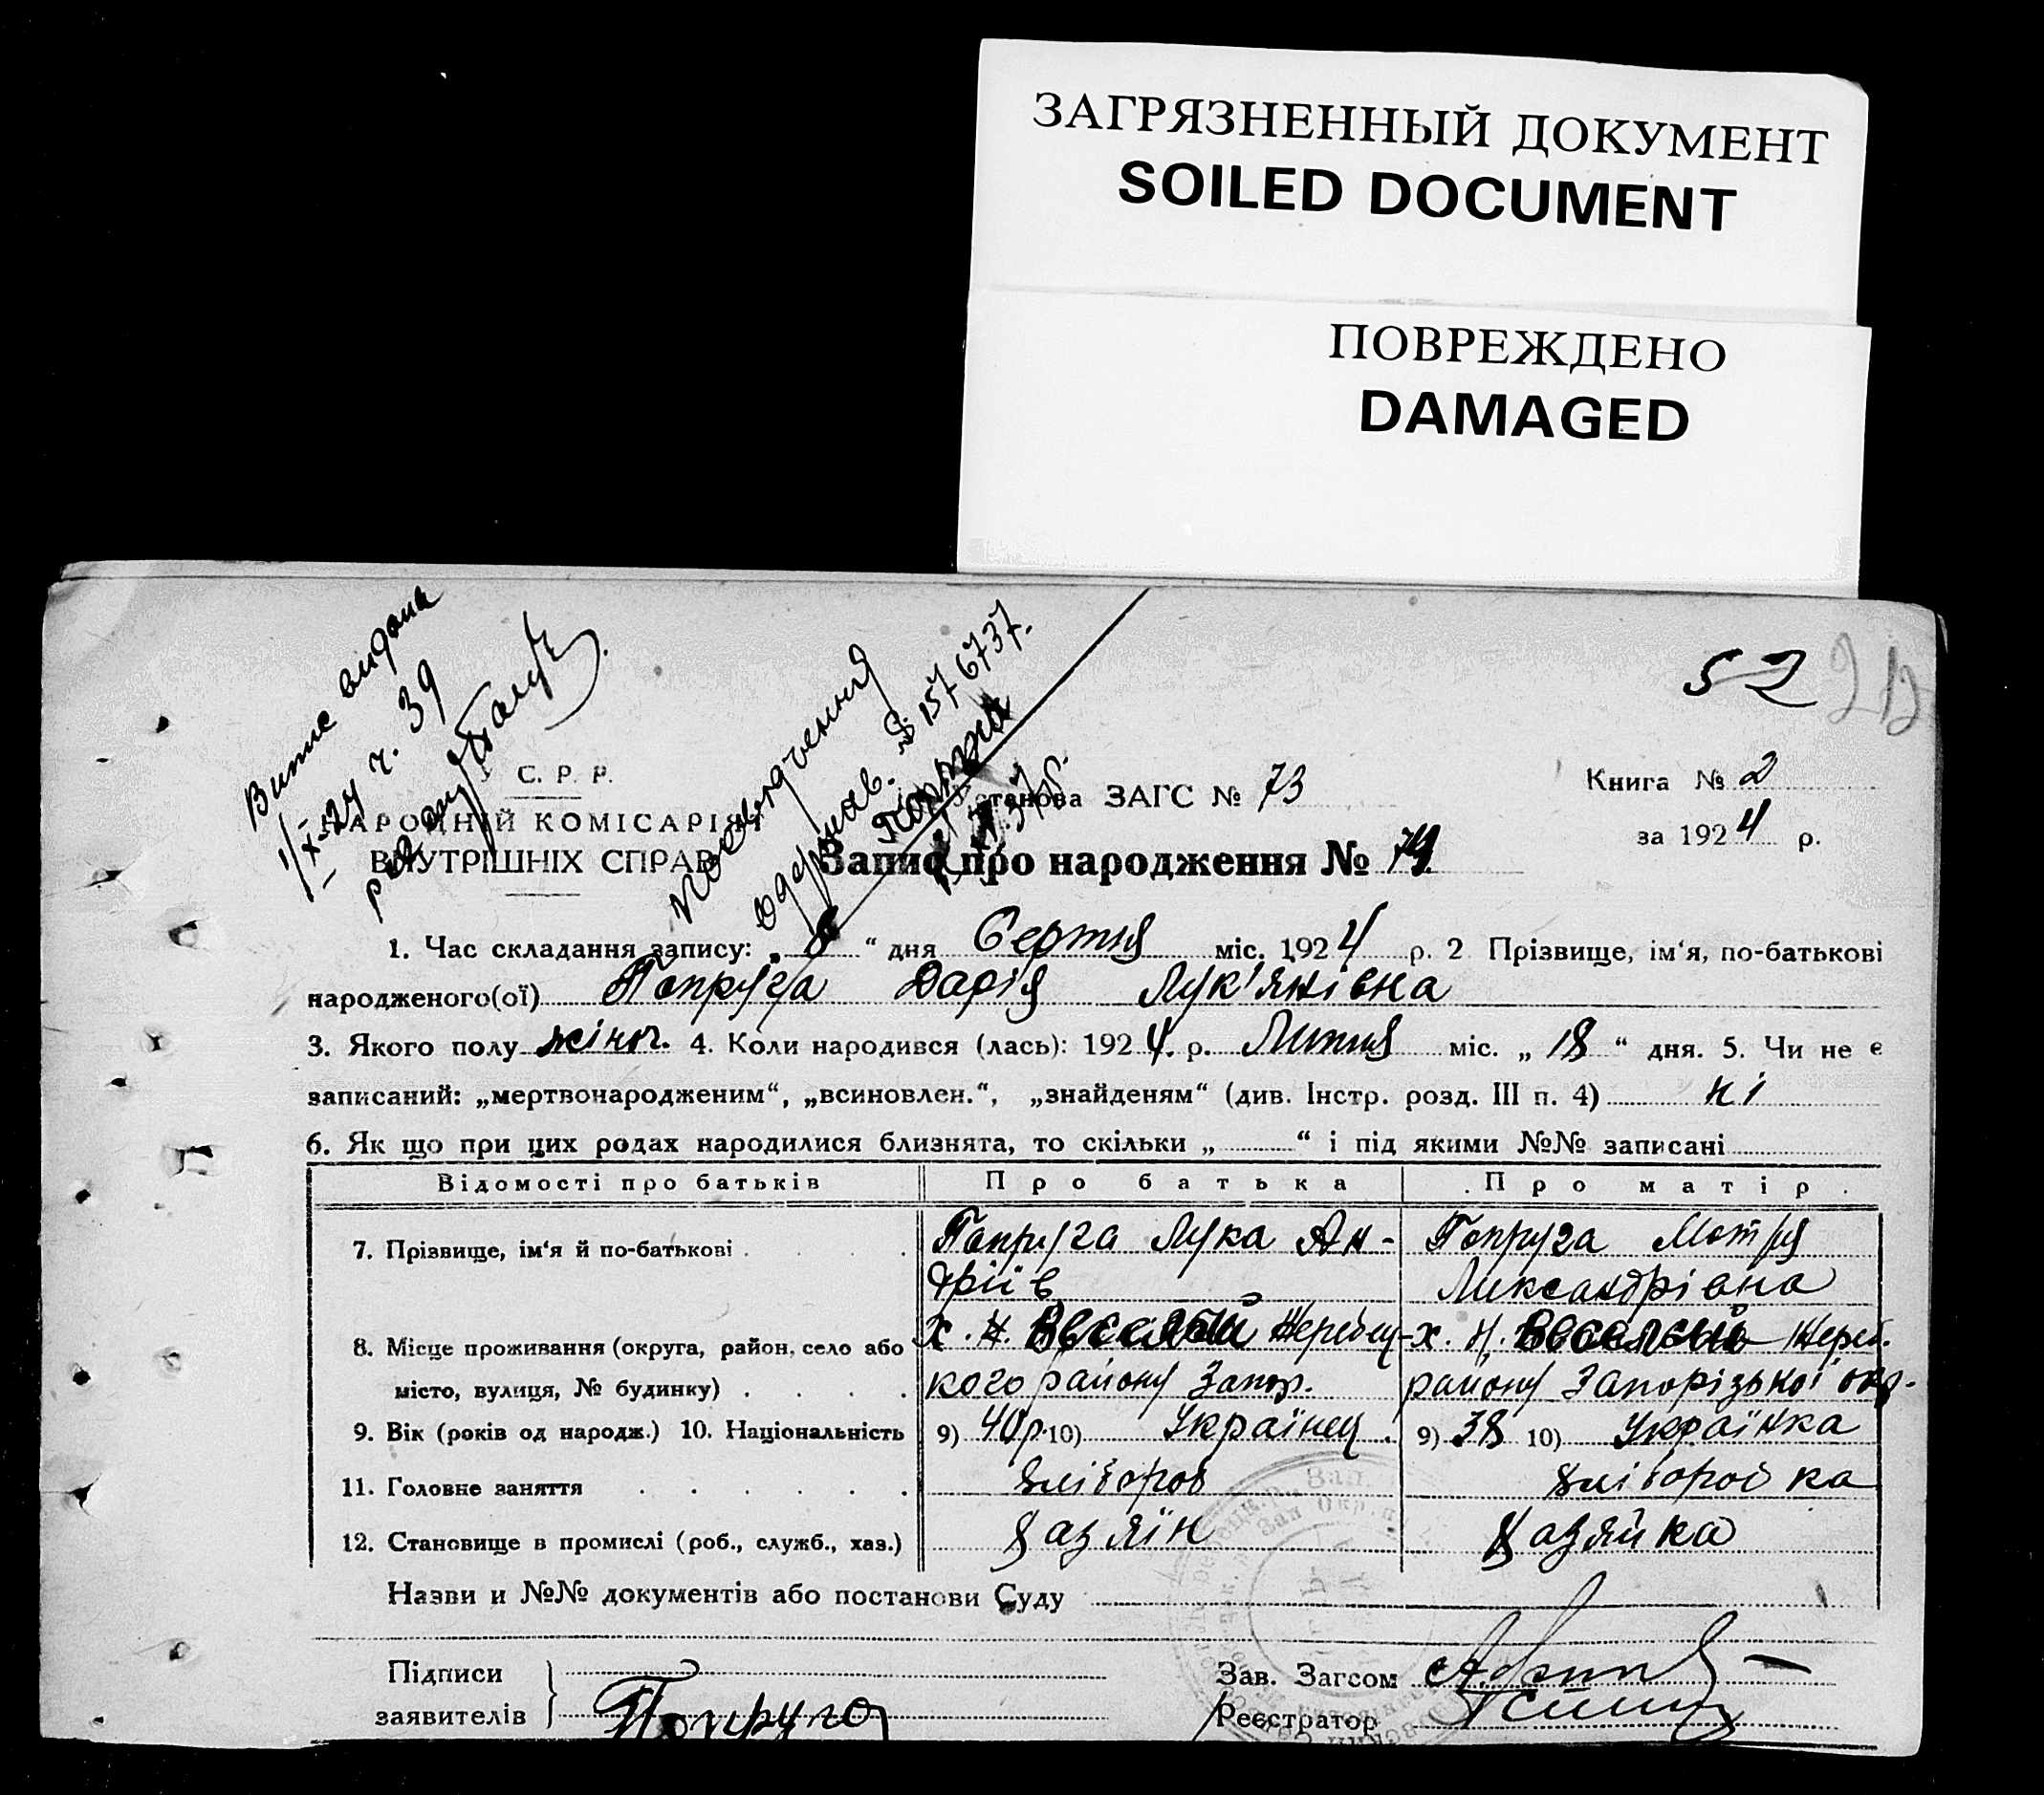 ЗАГРЯЗНЕННЫЙ ДОКУМЕНТ
SOILED DOCUMENT
ПОВРЕЖДЕНО
DAMAGED
52
Випис видана
1/X-24 ч. 39
посвідчення
одержав. 1576737.
С. Р. Р.
НАРОДНІЙ КОМІСАРІЯТ
ВНУТРІШНІХ СПРАВ
Установа ЗАГС № 73
Книга № 2
за 1924 р.
Запис про народження № 79
1. Час складання запису: „ 6 “ дня Серпня міс. 1924 р. 2 Прізвище, ім‘я, по-батькові
народженого(ої) Попруга Дарія Лук'янівна
3. Якого полу жіноч. 4. Коли народився (лась): 1924. р. Липня міс. „ 18 “ дня. 5. Чи не є
записаний: „мертвонародженим“, „всиновлен.“, „знайденям“ (див. Інстр. розд. III п. 4) ні
6. Як що при цих родах народилися близнята, то скільки „ “ і під якими №№ записані
Відомості про батьків Про батька Про матір
7. Прізвище, ім‘я й по-батькові Попруга Лука Ан- Попруга Мотря
дріїв Лександрівна
8. Місце проживання (округа, район, село або х. Н. Веселый Жеребец- х. Н. Жереб.
місто, вулиця, № будинку) кого району Запор. району Запорізької окр.
9. Вік (років од народж.) 10. Національність 9) 40р. 10) Українец 9) 38 10) Українка
11. Головне заняття хлібороб хліборобка
12. Становище в промислі (роб., служб., хаз.) Хазяїн Хазяйка
Назви и №№ документів або постанови Суду
Підписи
заявителів } Попруга
Зав. Загсом
Реєстратор